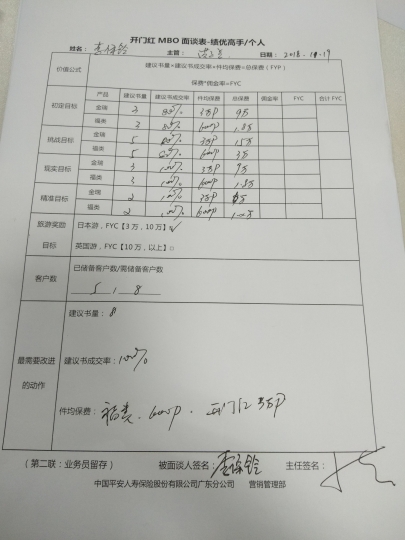 开门红 MBO 面谈表-绩优高手/个人
姓名： 主管： 日期：2018.10.19
价值公式 建议书量*建议书成交率*件均保费=总保费（FYP）
保费*佣金率=FYC
产品 建议书量 建议书成交率 件均保费 总保费 佣金率 FYC 合计 FYC
初定目标 金瑞 3 3万P 9万
福类 3 6000P 1.8万
挑战目标 金瑞 5 3万P 15万
福类 5 6000P 3万
现实目标 金瑞 3 100% 3万P 9万
福类 3 100% 6000P 1.8万
精准目标 金瑞 2 100% 3万P 6万
福类 2 100% 6000P
旅游奖励目标 日本游，FYC【3 万，10 万】☑
英国游，FYC【10 万，以上】□
客户数 已储备客户数/需储备客户数
5 / 8
最需要改进的动作 建议书量：8
建议书成交率：100%
件均保费：福类.6000P.开门红3万P
（第二联：业务员留存） 被面谈人签名： 主任签名：
中国平安人寿保险股份有限公司广东分公司 营销管理部